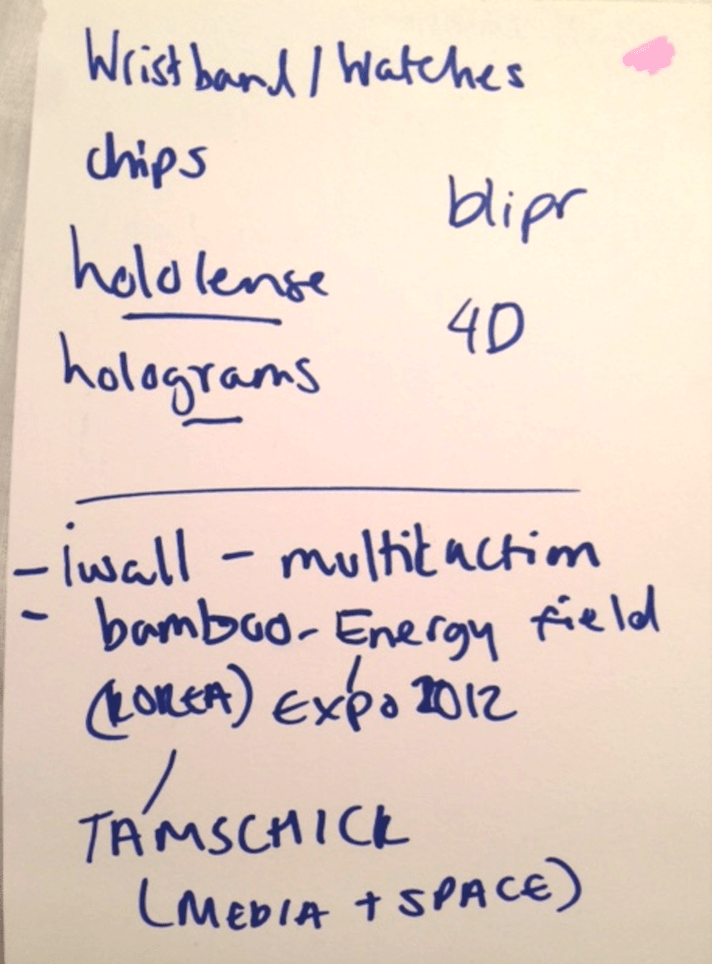 Wristband / Watches
chips
blipr
hololense
4D
holograms
- iwall - multitaction
- bamboo - Energy field
(KOREA) Expo 2012
TAMSCHICK
(MEDIA + SPACE)